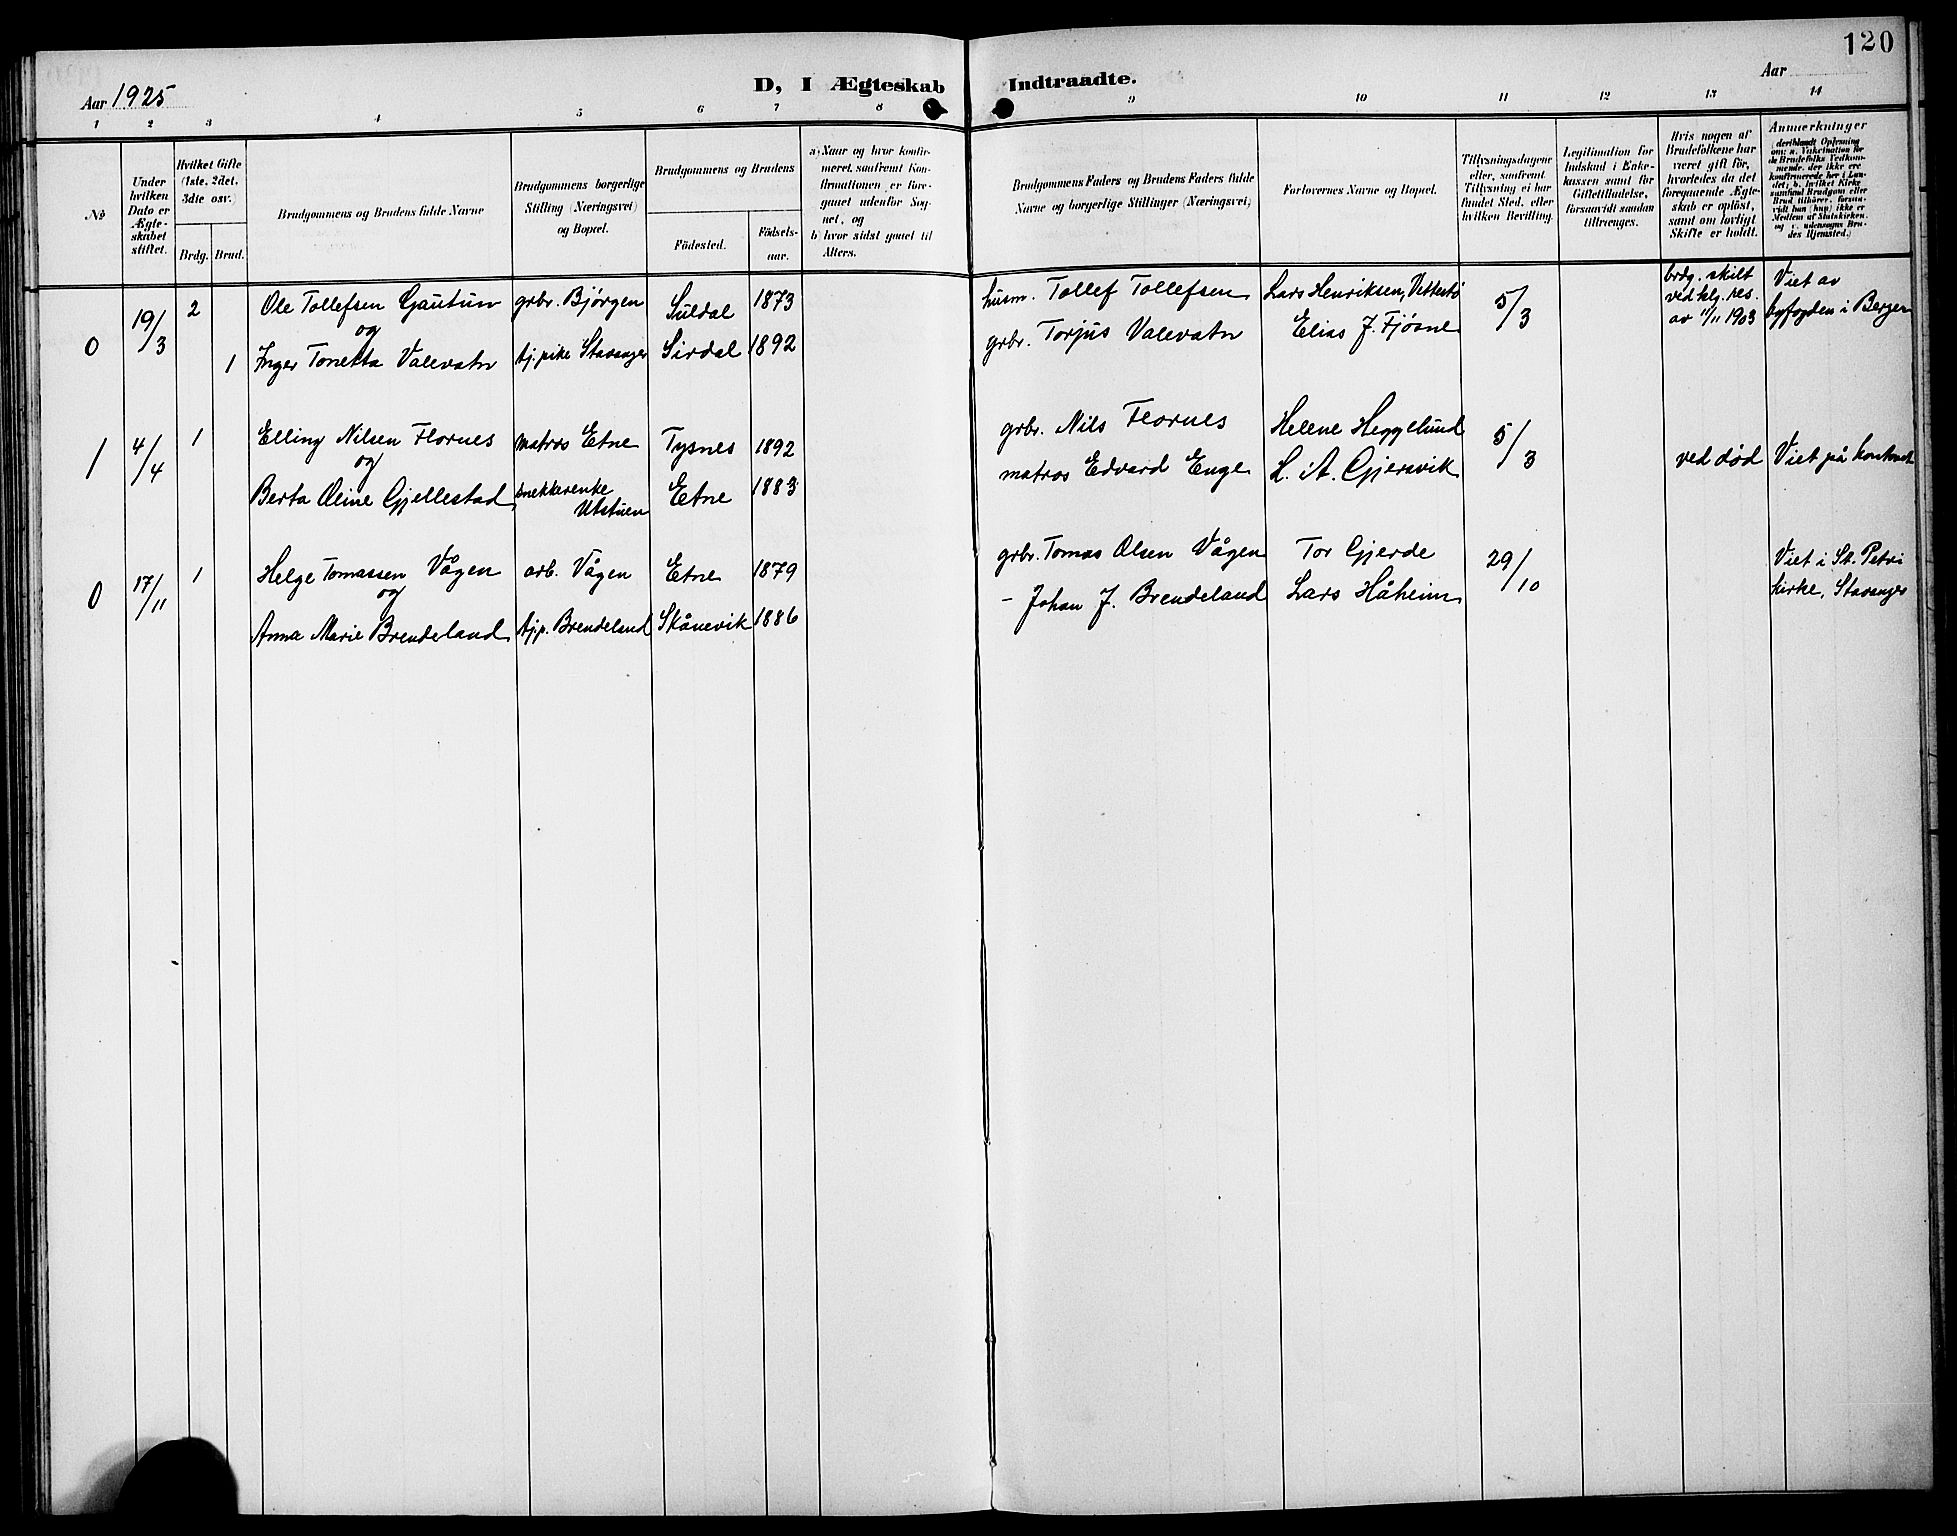 120
Aar 1925
D, I Ægteskab Indtraadte.
Aar
1 2 3 4 5 6 7 8 9 10 11 12 13 14
No
Under hvilken Dato er Ægteskabet stiftet.
Hvilket Gifte (1ste, 2det, 3dte osv.)
Brdg. Brud.
Brudgommens og Brudens fulde Navne
Brudgommens borgerlige Stilling (Næringsvei) og Bopæl.
Brudgommens og Brudens
Födested.
Födselsaar.
a) Naar og hvor konfirmeret, saafremt Konfirmationen er foregaaet udenfor Sognet, og
b) hvor sidst gaaet til Alters.
Brudgommens Faders og Brudens Faders fulde Navne og borgerlige Stillinger (Næringsvei)
Forlovernes Navne og Bopæl.
Tillysningsdagene eller, saafremt Tillysning ei har fundet Sted, efter hvilken Bevilling.
Legitimation for Indskud i Enkekassen samt for Giftetilladelse, forsaavidt saadan tiltrænges.
Hvis nogen af Brudefolkene har været gift för, hvorledes da det foregaaende Ægteskab er oplöst, samt om lovligt Skifte er holdt.
Anmerkninger (deriblandt Oplysning om: a. Vaksination for de Brudefolks Vedkommende, der ikke ere konfirmerede her i Landet; b. hvilket Kirkesamfund Brudgom eller Brud tilhörer, forsaavidt han (hun) ikke er Medlem af Statskirken, og c. udensogns Brudes Hjemsted.)
0 19/3 2 Ole Tollefsen Gautun grbr. Bjørgen Suldal 1873 husm. Tollef Tollefsen Lars Henriksen, Vettestø 5/3 brdg. skilt ved klg. res. av 11/11 1903 Viet av byfogden i Bergen
og
1 Inger Tonetta Valevatn tj. pike Stavanger Sirdal 1892 grbr. Torjus Valevatn Elias J. Fjøsne
1 4/4 1 Elling Nilsen Flornes matros Etne Tysnes 1892 grbr. Nils Flornes Helene Heggelund 5/3 ved død Viet på kontoret
og
Berta Oline Gjellestad snekkerenke Utstuen Etne 1883 matros Edvard Enge H. A. Gjersvik
0 17/11 1 Helge Tomassen Vågen arb. Vågen Etne 1879 grbr. Tomas Olsen Vågen Tor Gjerde 29/10 Viet i St. Petri kirke, Stavanger
og
Anna Marie Brendeland tjp. Brendeland Skånevik 1886 - Johan J. Brendeland Lars Håheim